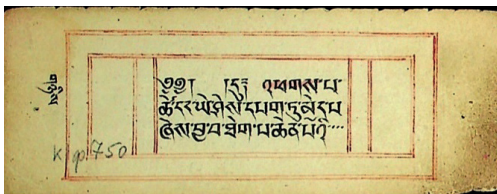 ༄༅། །དུ༔ འཕགས་པ་
ཚེ་དང་ཡེ་ཤེས་དཔག་ཏུ་མེད་པ
ཞེས་བྱ་བ་ཐེག་པ་ཆེན་པོའི་····
གཅིག
750